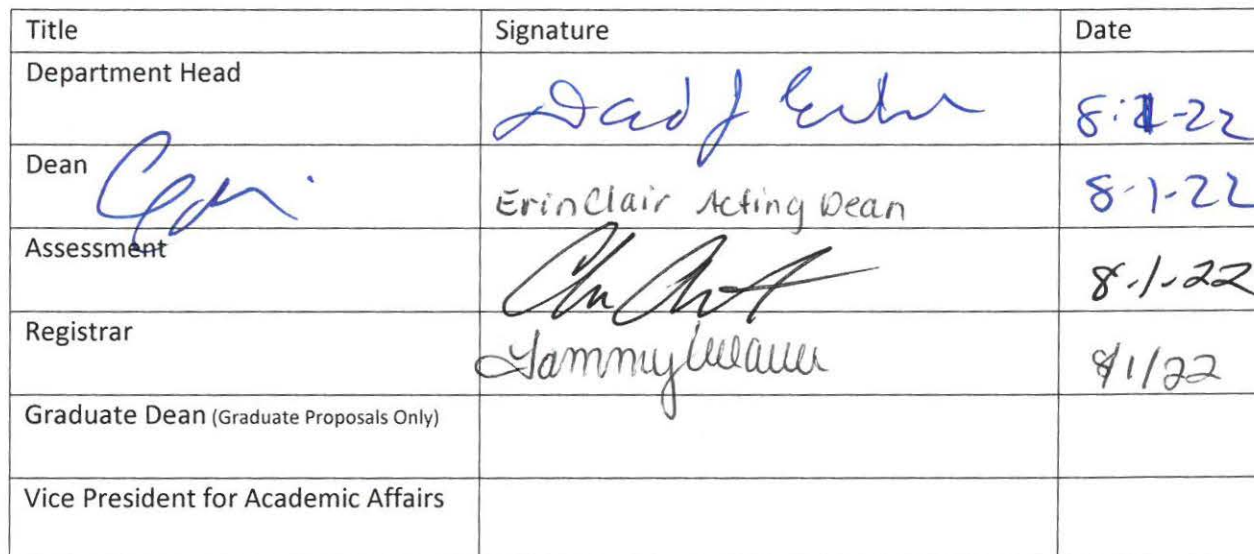 Title Signature Date
Department Head
Dean Erin Clair Acting Dean 8-1-22
Assessment 8-1-22
Registrar Tammy 8/1/22
Graduate Dean (Graduate Proposals Only)
Vice President for Academic Affairs